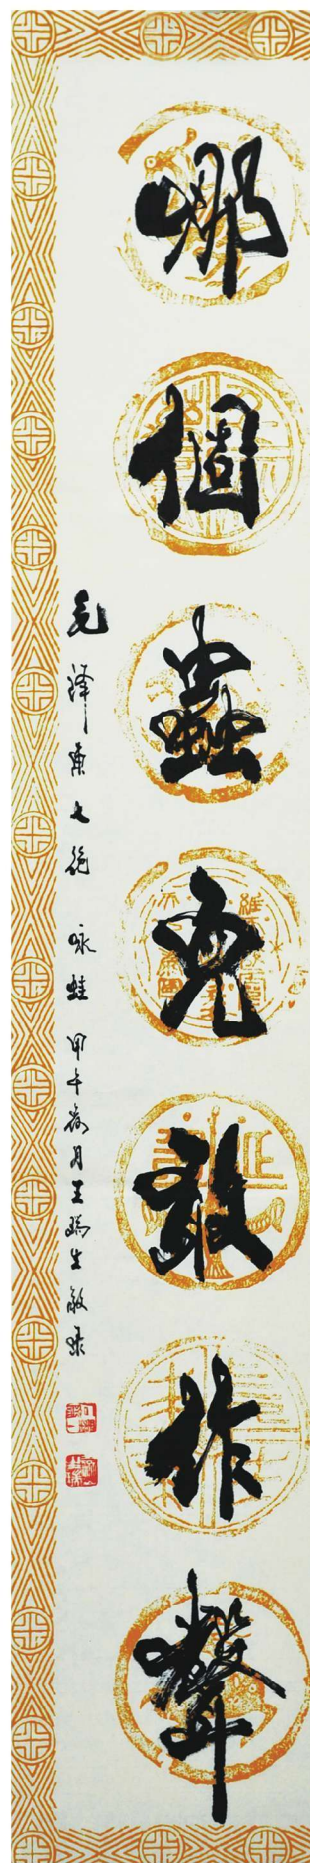 哪個蟲兒敢作聲
毛澤東七絕 咏蛙 甲午荷月王瑞生敬录